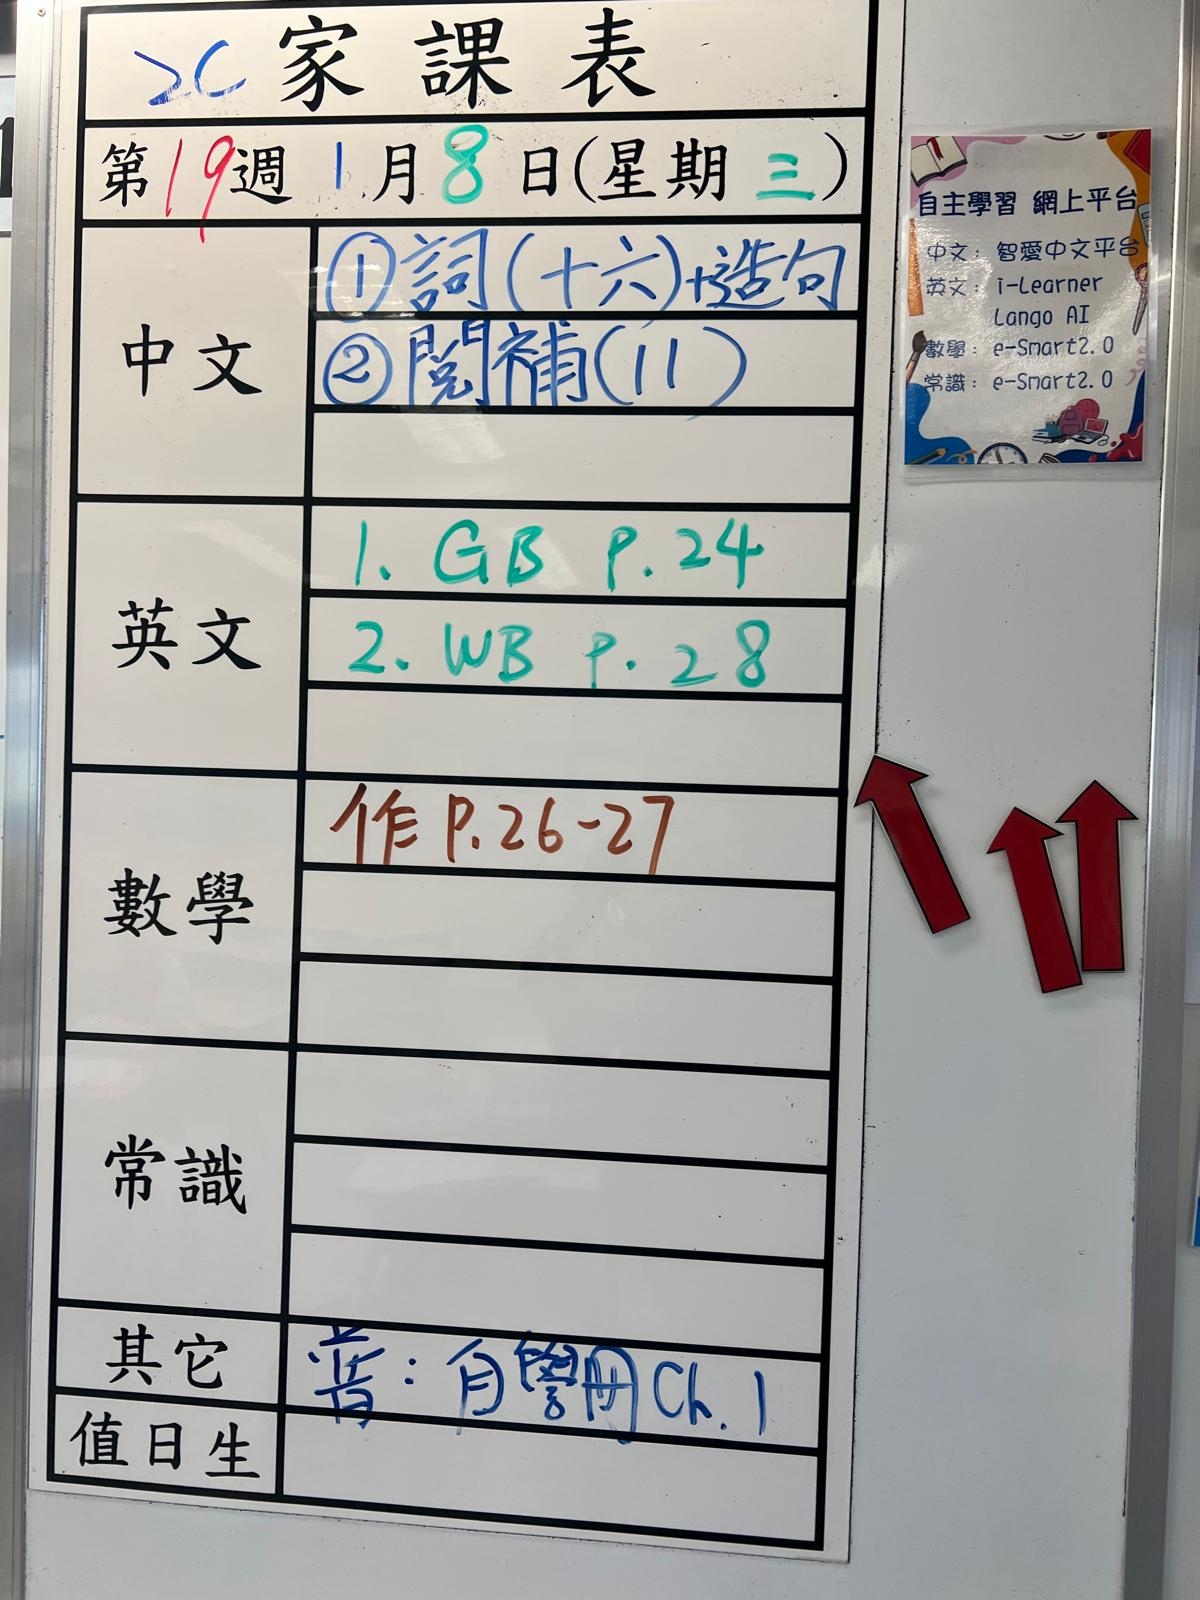 2C 家課表
第19週 1月8日(星期三)
中文
①詞(十六)+造句
②閱補(11)
英文
1. GB P.24
2. WB P.28
數學
作 P.26-27
常識
其它
普:自學冊 Ch.1
值日生
自主學習 網上平台
中文: 智愛中文平台
英文: i-Learner
Lango AI
數學: e-Smart2.0
常識: e-Smart2.0